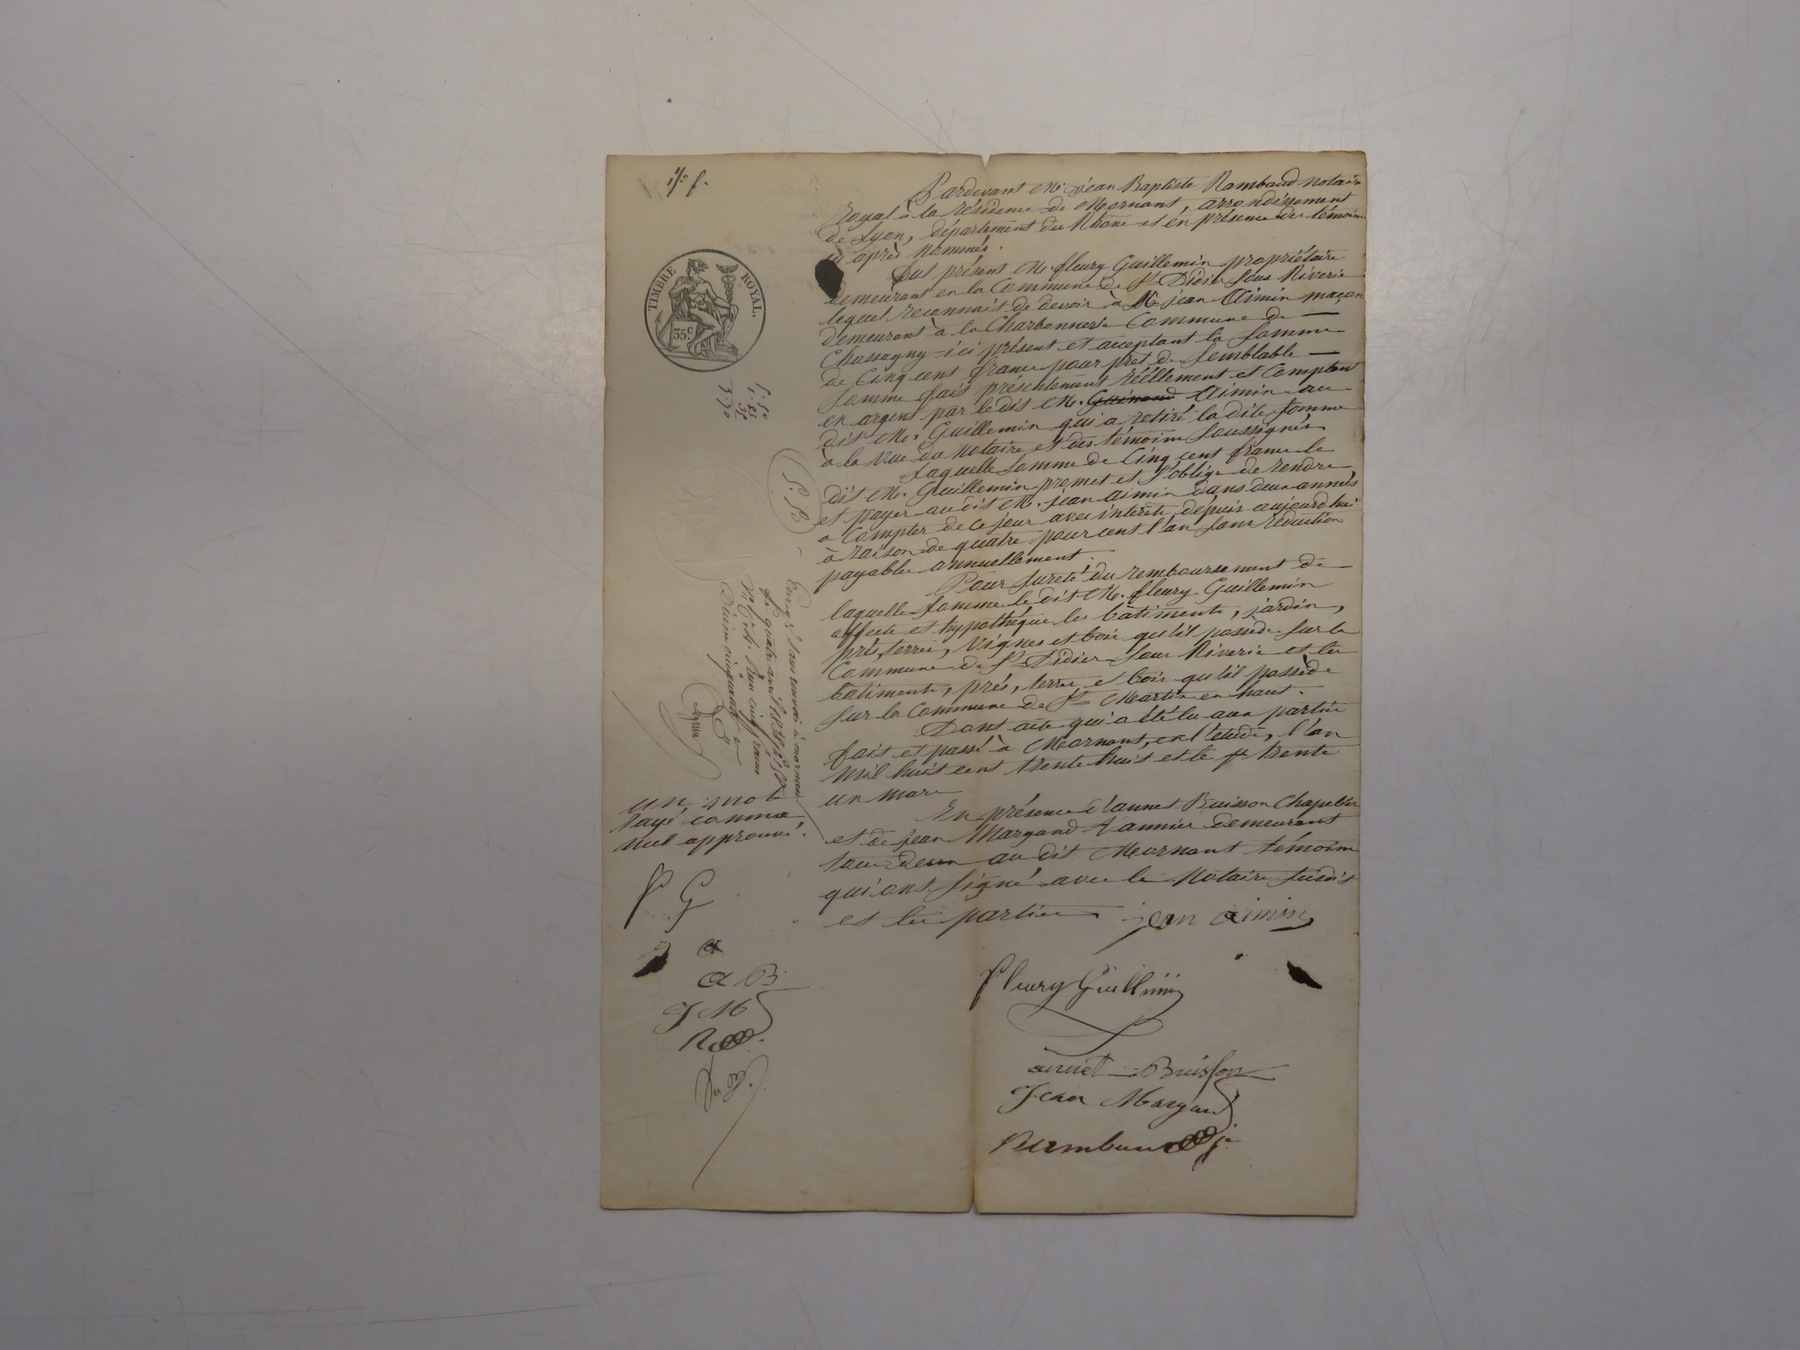 Pardevant Me. jean Baptiste Rambaud notaire
royal à la résidence de Mornant, arrondissement
de Lyon, département du Rhône et en présence des témoins
ci après nommés.
fut présent M. fleury Guillemin propriétaire
demeurant en la Commune de St. Didier sous Riverie
lequel reconnait de devoir à M. jean Aimin maçon
demeurant à la Charbonnerie Commune de
Chassagny ici présent et acceptant la somme
de Cinq cent francs pour prêt de semblable
somme fait présentement réellement et Comptant
en argent par le dit M. Guimand Aimin au
dit M. Guillemin qui a retiré la dite somme
à la vue du notaire et des témoins soussignés
Laquelle somme de Cinq cent francs le
dit M. Guillemin promet et s'oblige de rendre
et payer au dit M. jean aimin dans deux années
a compter de ce jour avec intérêts depuis aujourd'hui
à raison de quatre pour cent l'an sans réduction
payables annuellement.
Pour sureté du remboursement de
laquelle somme le dit M. fleury Guillemin
affecte et hypothèque les bâtiments, jardin,
prés, terres, vignes et bois qu'il possède sur la
Commune de St. Didier sous Riverie et les
bâtiments, prés, terres et bois qu'il possède
sur la Commune de St. Martin en haut.
Dont acte qui a été lu aux parties
fait et passé à Mornant, en l'étude, l'an
mil huit cent trente huit et le trente
un mars
En présence d'annet Buisson Chapelier
et de jean Margand tannier demeurant
tous deux au dit Mornant témoins
qui ont signé avec le notaire susdit
et les parties
jean aimin
fleury Guillmin
annet Buisson
Jean Margand
Rambaud
TIMBRE ROYAL.
35 c.
un mot
rayé comme
nul approuvé.
f G
a
a B
J M
R